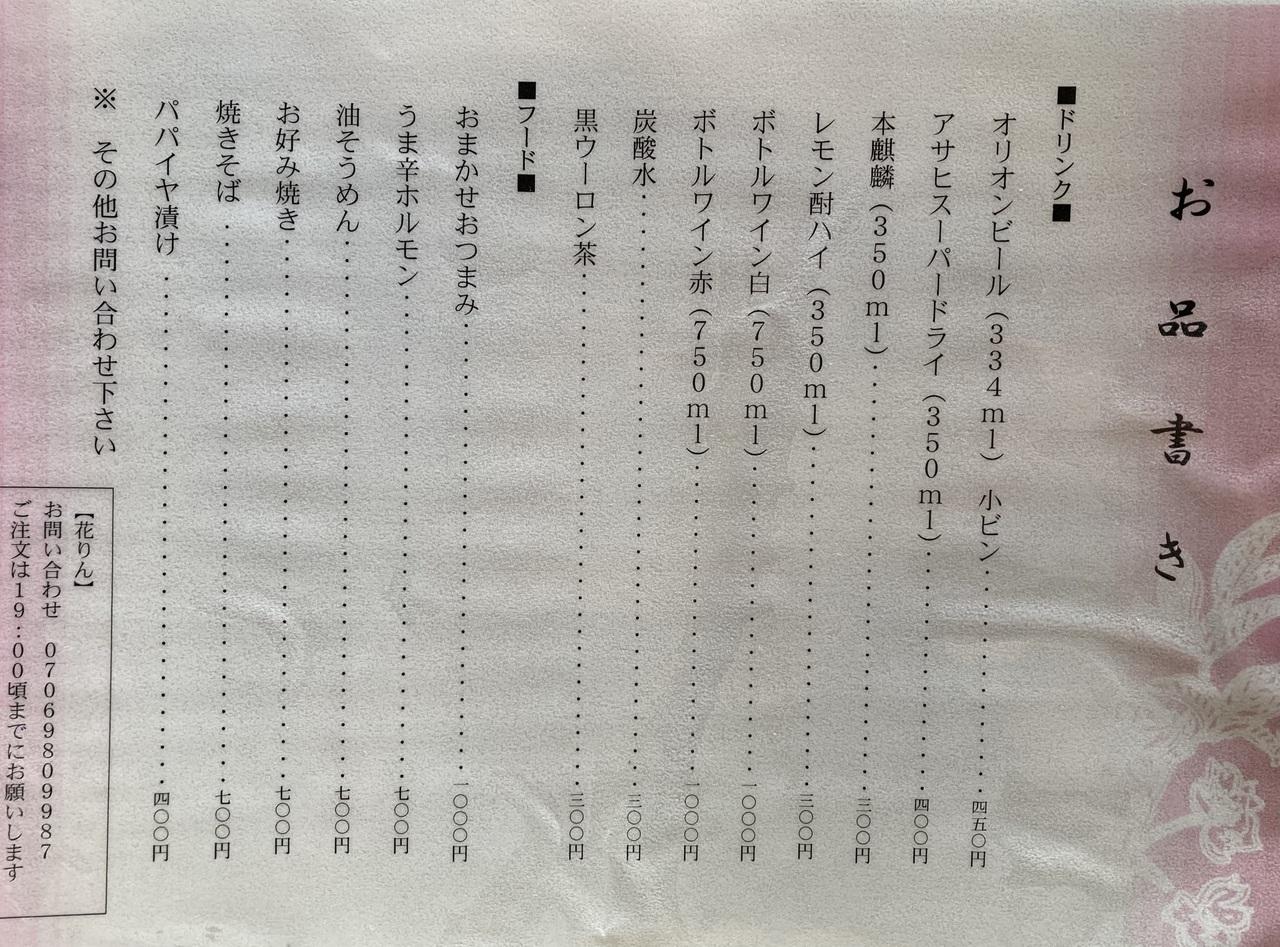 お品書き
■ドリンク■
オリオンビール（334ml）　小ビン・・・・・・・・・四五〇円
アサヒスーパードライ（350ml）・・・・・・・・・四〇〇円
本麒麟（350ml）・・・・・・・・・・・・・・・三〇〇円
レモン酎ハイ（350ml）・・・・・・・・・・・・三〇〇円
ボトルワイン白（750ml）・・・・・・・・・・・一〇〇〇円
ボトルワイン赤（750ml）・・・・・・・・・・・一〇〇〇円
炭酸水・・・・・・・・・・・・・・・・・・・・・三〇〇円
黒ウーロン茶・・・・・・・・・・・・・・・・・・三〇〇円
■フード■
おまかせおつまみ・・・・・・・・・・・・・・・・一〇〇〇円
うま辛ホルモン・・・・・・・・・・・・・・・・・七〇〇円
油そうめん・・・・・・・・・・・・・・・・・・・七〇〇円
お好み焼き・・・・・・・・・・・・・・・・・・・七〇〇円
焼きそば・・・・・・・・・・・・・・・・・・・・七〇〇円
パパイヤ漬け・・・・・・・・・・・・・・・・・・四〇〇円
※　その他お問い合わせ下さい
【花りん】
お問い合わせ　07069809987
ご注文は19：00頃までにお願いします